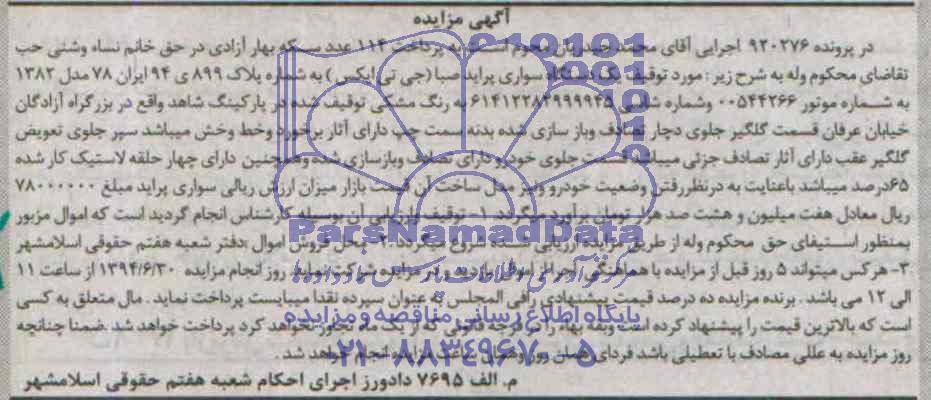 آگهی مزایده
در پرونده ۹۲۰۲۷۶ اجرایی آقای محمد حیدریان محکوم است به پرداخت ۱۱۴ عدد سکه بهار آزادی در حق خانم نساء وشنی حب
تقاضای محکوم وله به شرح زیر: مورد توقیف یک دستگاه سواری پراید صبا (جی تی ایکس) به شماره پلاک ۸۹۹ ی ۹۴ ایران ۷۸ مدل ۱۳۸۲
به شماره موتور ۰۰۵۴۴۲۶۶ وشماره شاسی ۶۱۴۱۲۲۸۲۹۹۹۹۴۵ به رنگ مشکی توقیف شده در پارکینگ شاهد واقع در بزرگراه آزادگان
خیابان عرفان قسمت گلگیر جلوی دچار تصادف وباز سازی شده بدنه سمت چپ دارای آثار برخورد وخط وخش میباشد سپر جلوی تعویض
گلگیر عقب دارای آثار تصادف جزئی میباشد قسمت جلوی خودرو دارای تصادف وبازسازی شده وهمچنین دارای چهار حلقه لاستیک کار شده
۶۵درصد میباشد باعنایت به درنظررفتن وضعیت خودرو ونیز مدل ساخت آن قیمت بازار میزان ارزش ریالی سواری پراید مبلغ ۷۸۰۰۰۰۰۰
ریال معادل هفت میلیون و هشت صد هزار تومان برآورد میگردد. ۱- توقیف وارزیابی آن بوسیله کارشناس انجام گردید است که اموال مزبور
بمنظور استیفای حق محکوم وله از طریق مزایده ارزیابی شده شروع میگردد ۲- محل فروش اموال :دفتر شعبه هفتم حقوقی اسلامشهر
۳- هرکس میتواند ۵ روز قبل از مزایده با هماهنگی اجرا از اموال بازدید و در مزایده شرکت نماید روز انجام مزایده ۱۳۹۴/۶/۳۰ از ساعت ۱۱
الی ۱۲ می باشد . برنده مزایده ده درصد قیمت پیشنهادی رافی المجلس به عنوان سپرده نقدا میبایست پرداخت نماید . مال متعلق به کسی
است که بالاترین قیمت را پیشنهاد کرده است وبقه بهاء را در فرجه قانونی که از یک ماه تجاوز نخواهد کرد پرداخت خواهد شد .ضمنا چنانچه
روز مزایده به عللی مصادف با تعطیلی باشد فردای همان روز وهمان ساعت مزایده انجام خواهد شد .
م. الف ۷۶۹۵ دادورز اجرای احکام شعبه هفتم حقوقی اسلامشهر
ParsNamadData
پایگاه اطلاع رسانی مناقصه و مزایده
۰۲۱-۸۸۳۴۹۶۷۰-۵